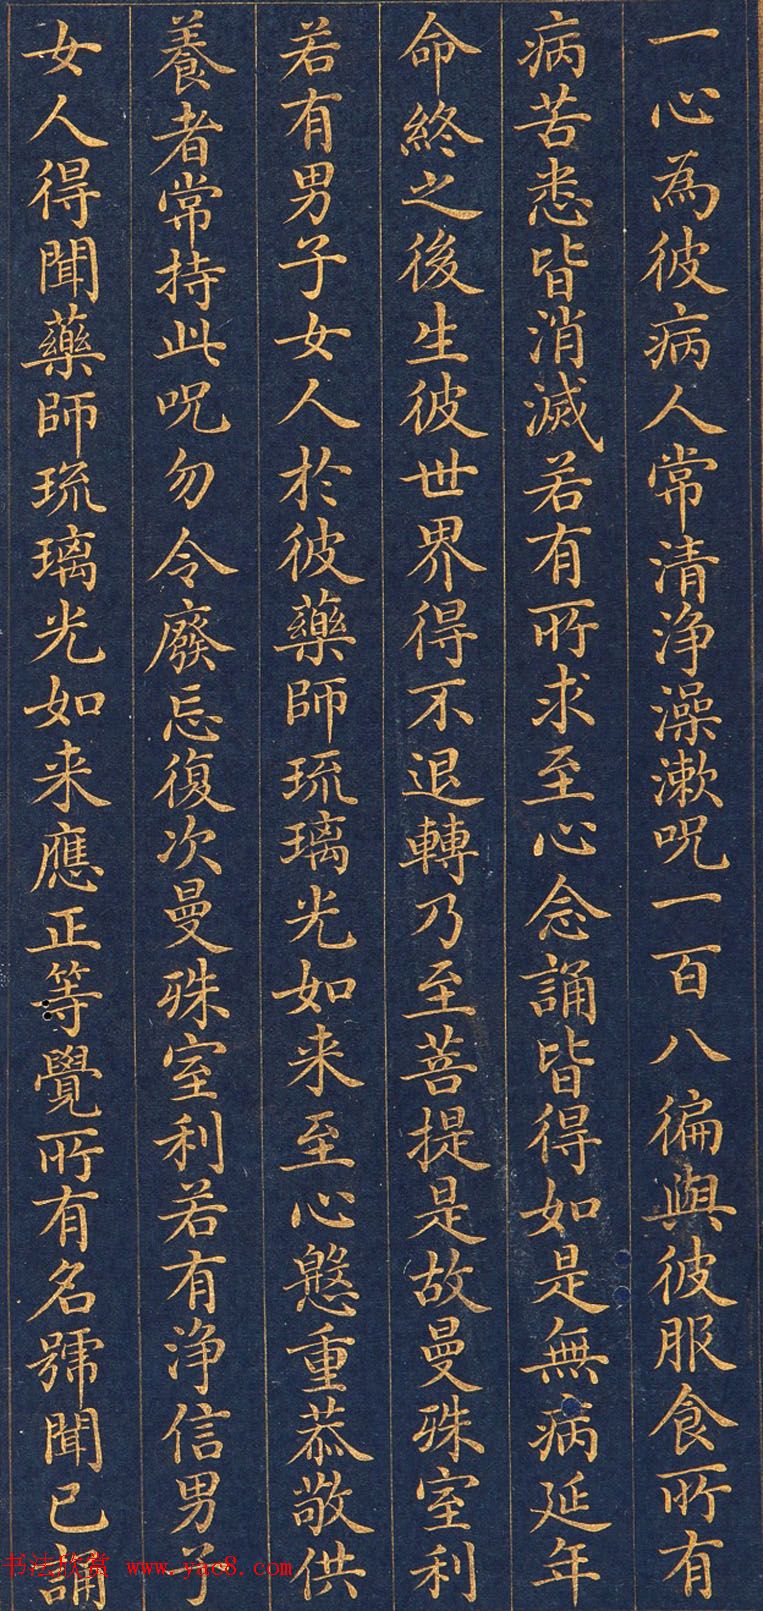 一心為彼病人常清浄澡漱呪一百八徧與彼服食所有
病苦悉皆消滅若有所求至心念誦皆得如是無病延年
命終之後生彼世界得不退轉乃至菩提是故曼殊室利
若有男子女人於彼藥師琉璃光如来至心慇重恭敬供
養者常持此呪勿令廢忘復次曼殊室利若有浄信男子
女人得聞藥師琉璃光如来應正等覺所有名號聞已誦
书法欣赏 www.yac8.com